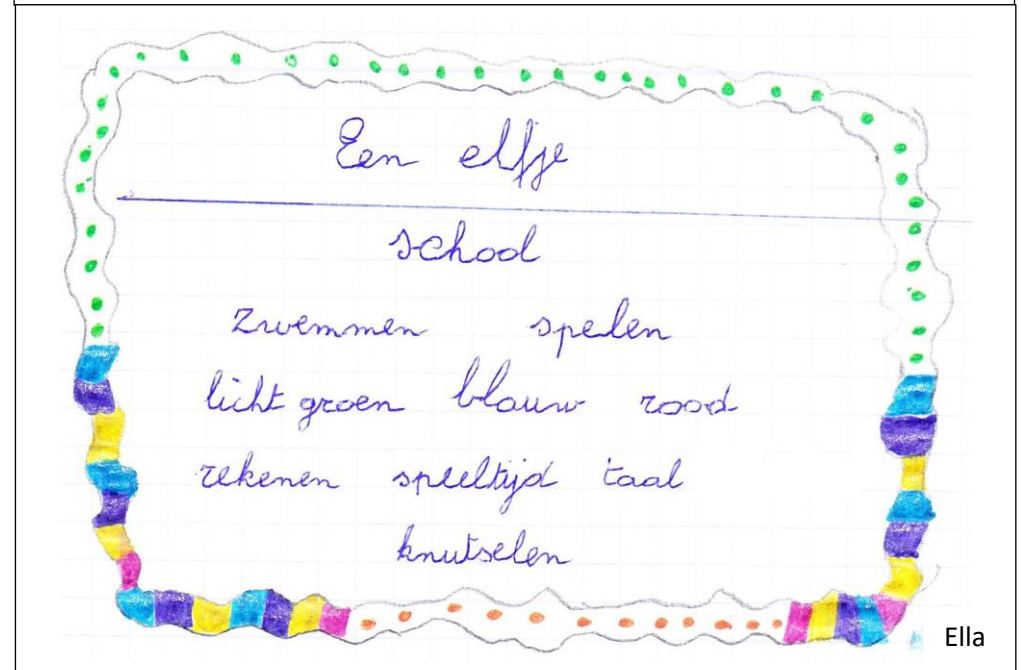 Een elfje
school
zwemmen spelen
licht groen blauw rood
rekenen speeltijd taal
knutselen
Ella